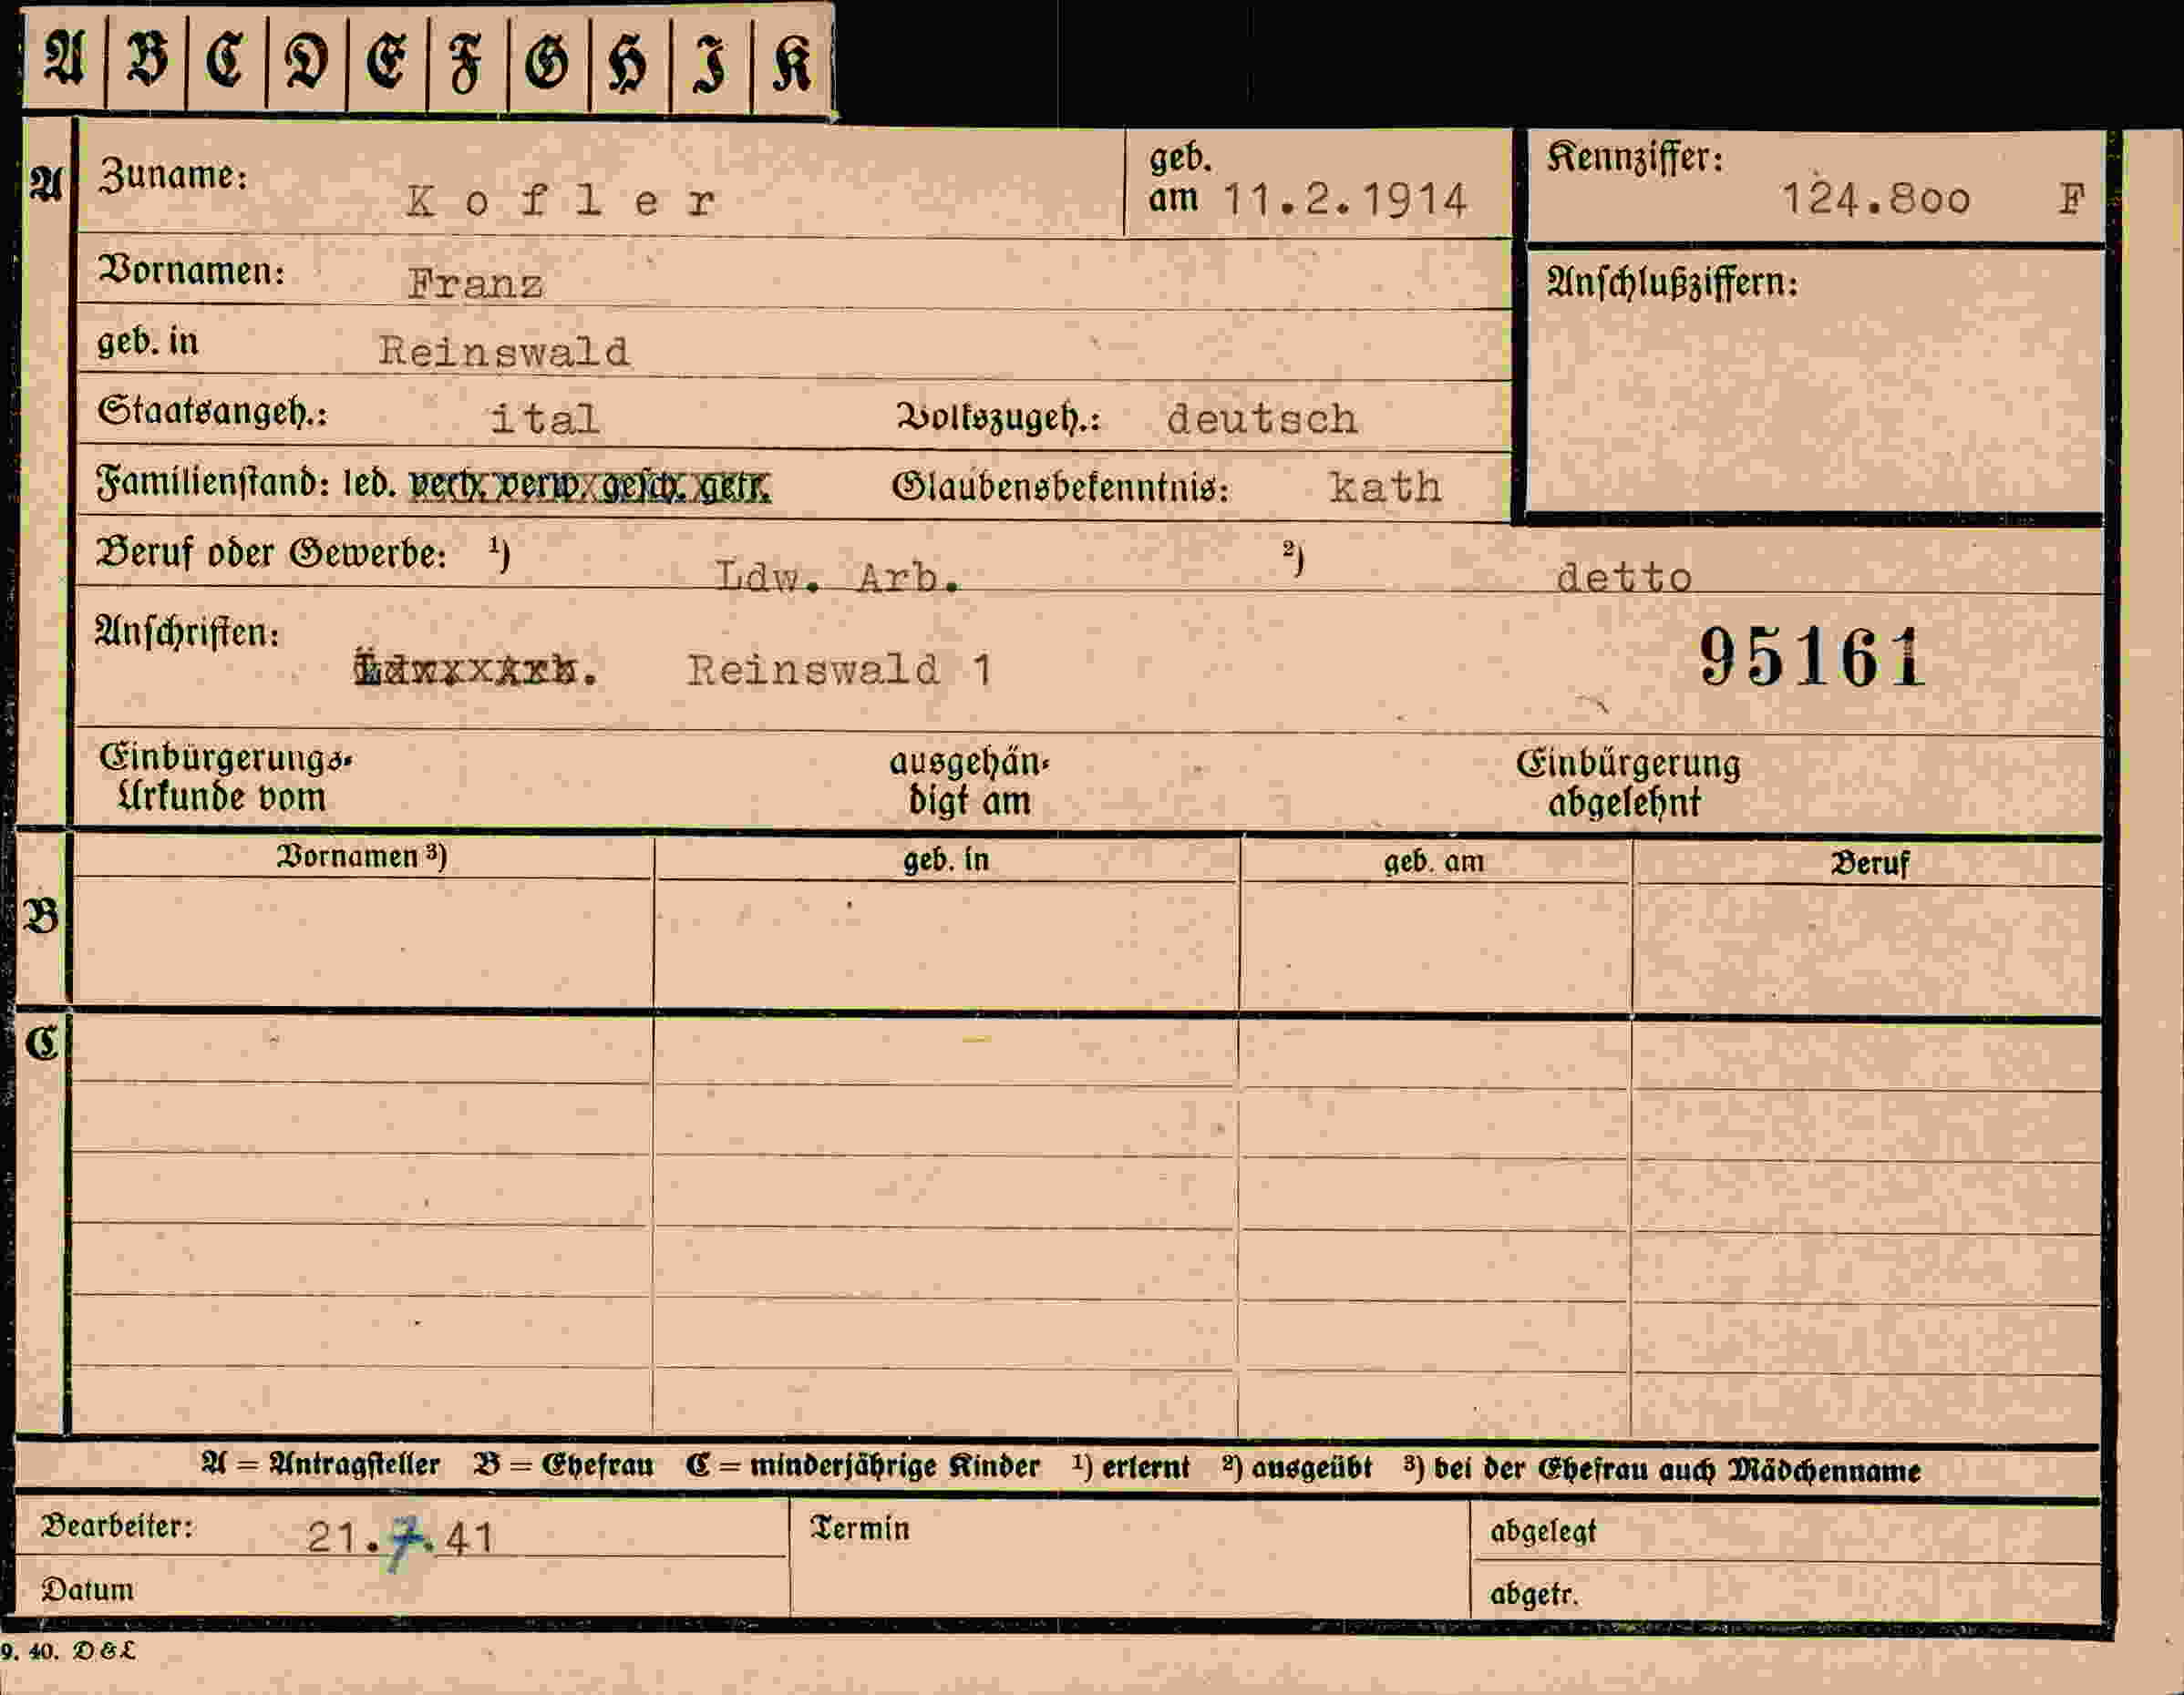 A B C D E F G H I K
A Zuname: Kofler geb. am 11.2.1914 Kennziffer: 124.800 F
Vornamen: Franz Anschlußziffern:
geb. in Reinswald
Staatsangeh.: ital Volkszugeh.: deutsch
Familienstand: led. verh. verw. gesch. getr. Glaubensbekenntnis: kath
Beruf oder Gewerbe: ¹) Ldw. Arb. ²) detto
Anschriften: Reinswald 1 95161
Einbürgerungs- ausgehän- Einbürgerung
Urkunde vom digt am abgelehnt
B Vornamen ³) geb. in geb. am Beruf
C
A = Antragsteller B = Ehefrau C = minderjährige Kinder ¹) erlernt ²) ausgeübt ³) bei der Ehefrau auch Mädchenname
Bearbeiter: 21.7.41 Termin abgelegt
Datum abgetr.
9. 40. D & L